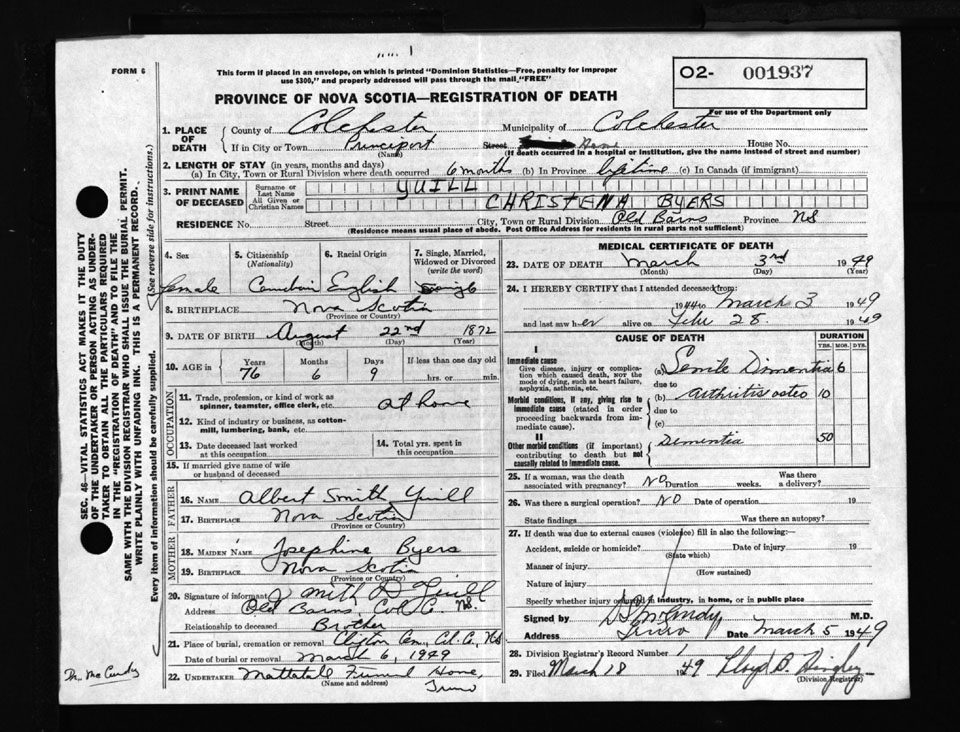 FORM 6
This form if placed in an envelope, on which is printed "Dominion Statistics—Free, penalty for improper
use $300," and properly addressed will pass through the mail, "FREE"
O2- 001937
For use of the Department only
PROVINCE OF NOVA SCOTIA—REGISTRATION OF DEATH
1. PLACE OF DEATH
County of Colchester Municipality of Colchester
If in City or Town Princeport Street House No.
(Name) (If death occurred in a hospital or institution, give the name instead of street and number)
2. LENGTH OF STAY (in years, months and days)
(a) In City, Town or Rural Division where death occurred 6 months (b) In Province lifetime (c) In Canada (if immigrant)
3. PRINT NAME OF DECEASED
Surname or Last Name YUILL
All Given or Christian Names CHRISTENA BYERS
RESIDENCE No. Street City, Town or Rural Division Old Barns Province NS
(Residence means usual place of abode. Post Office Address for residents in rural parts not sufficient)
4. Sex
female
5. Citizenship
(Nationality)
6. Racial Origin
English
7. Single, Married, Widowed or Divorced
(write the word)
8. BIRTHPLACE Nova Scotia
(Province or Country)
9. DATE OF BIRTH August 22nd 1872
(Month) (Day) (Year)
10. AGE in Years Months Days If less than one day old
76 6 9 hrs. or min.
OCCUPATION
11. Trade, profession, or kind of work as spinner, teamster, office clerk, etc. at home
12. Kind of industry or business, as cotton-mill, lumbering, bank, etc.
13. Date deceased last worked at this occupation
14. Total yrs. spent in this occupation
15. If married give name of wife or husband of deceased
FATHER
16. NAME Albert Smith Yuill
17. BIRTHPLACE Nova Scotia
(Province or Country)
MOTHER
18. MAIDEN NAME Josephine Byers
19. BIRTHPLACE Nova Scotia
(Province or Country)
20. Signature of informant J Smith D Yuill
Address Old Barns, Col. Co. NS.
Relationship to deceased Brother
21. Place of burial, cremation or removal Clifton Cem, Col. Co., NS
Date of burial or removal March 6, 1949
22. UNDERTAKER Mattatall Funeral Home,
(Name and address) Truro
MEDICAL CERTIFICATE OF DEATH
23. DATE OF DEATH March 3rd 1949
(Month) (Day) (Year)
24. I HEREBY CERTIFY that I attended deceased from:
1944 to March 3 1949
and last saw her alive on Feb 28 1949
CAUSE OF DEATH
DURATION
YRS. MOS. DYS.
I
Immediate cause
Give disease, injury or complication which caused death, not the mode of dying, such as heart failure, asphyxia, asthenia, etc.
(a) Senile Dimentia 6
due to
Morbid conditions, if any, giving rise to immediate cause (stated in order proceeding backwards from immediate cause).
(b) Arthritis osteo 10
due to
(c)
II
Other morbid conditions (if important) contributing to death but not causally related to immediate cause.
Dementia 50
25. If a woman, was the death associated with pregnancy? NO Duration weeks. Was there a delivery?
26. Was there a surgical operation? NO Date of operation 19
State findings Was there an autopsy?
27. If death was due to external causes (violence) fill in also the following:
Accident, suicide or homicide? Date of injury 19
(State which)
Manner of injury
(How sustained)
Nature of injury
Specify whether injury occurred in industry, in home, or in public place
Signed by McCurdy M.D.
Address Truro Date March 5 1949
28. Division Registrar's Record Number 1
29. Filed March 18 1949 Lloyd B. Dingley
(Division Registrar)
SEC. 46—VITAL STATISTICS ACT MAKES IT THE DUTY
OF THE UNDERTAKER OR PERSON ACTING AS UNDER-
TAKER TO OBTAIN ALL THE PARTICULARS REQUIRED
IN THE "REGISTRATION OF DEATH" AND TO FILE THE
SAME WITH THE DIVISION REGISTRAR WHO SHALL ISSUE THE BURIAL PERMIT.
WRITE PLAINLY WITH UNFADING INK. THIS IS A PERMANENT RECORD.
Every item of information should be carefully supplied. (See reverse side for instructions.)
Dr. McCurdy